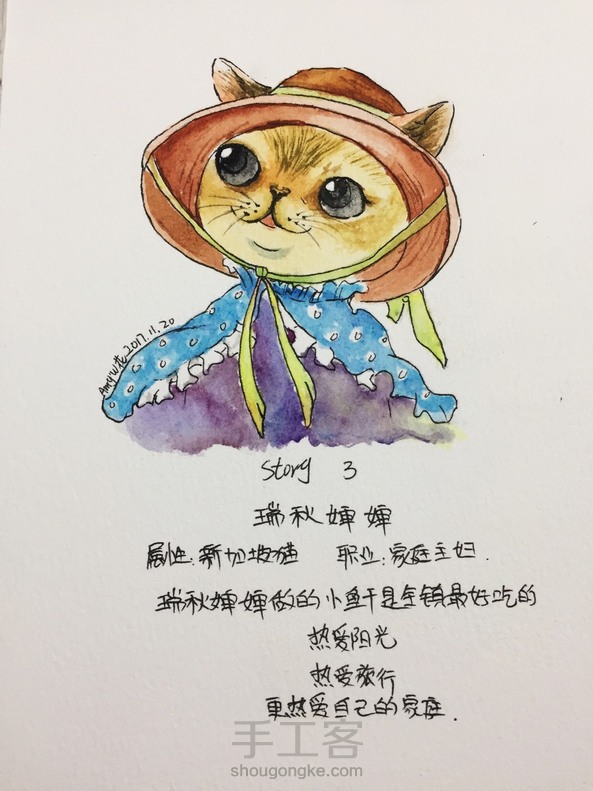 Amy山花 2017.11.20
Story 3
瑞秋婶婶
属性:新加坡猫 职业:家庭主妇.
瑞秋婶婶做的小鱼干是全镇最好吃的
热爱阳光
热爱旅行
更热爱自己的家庭.
手工客
shougongke.com